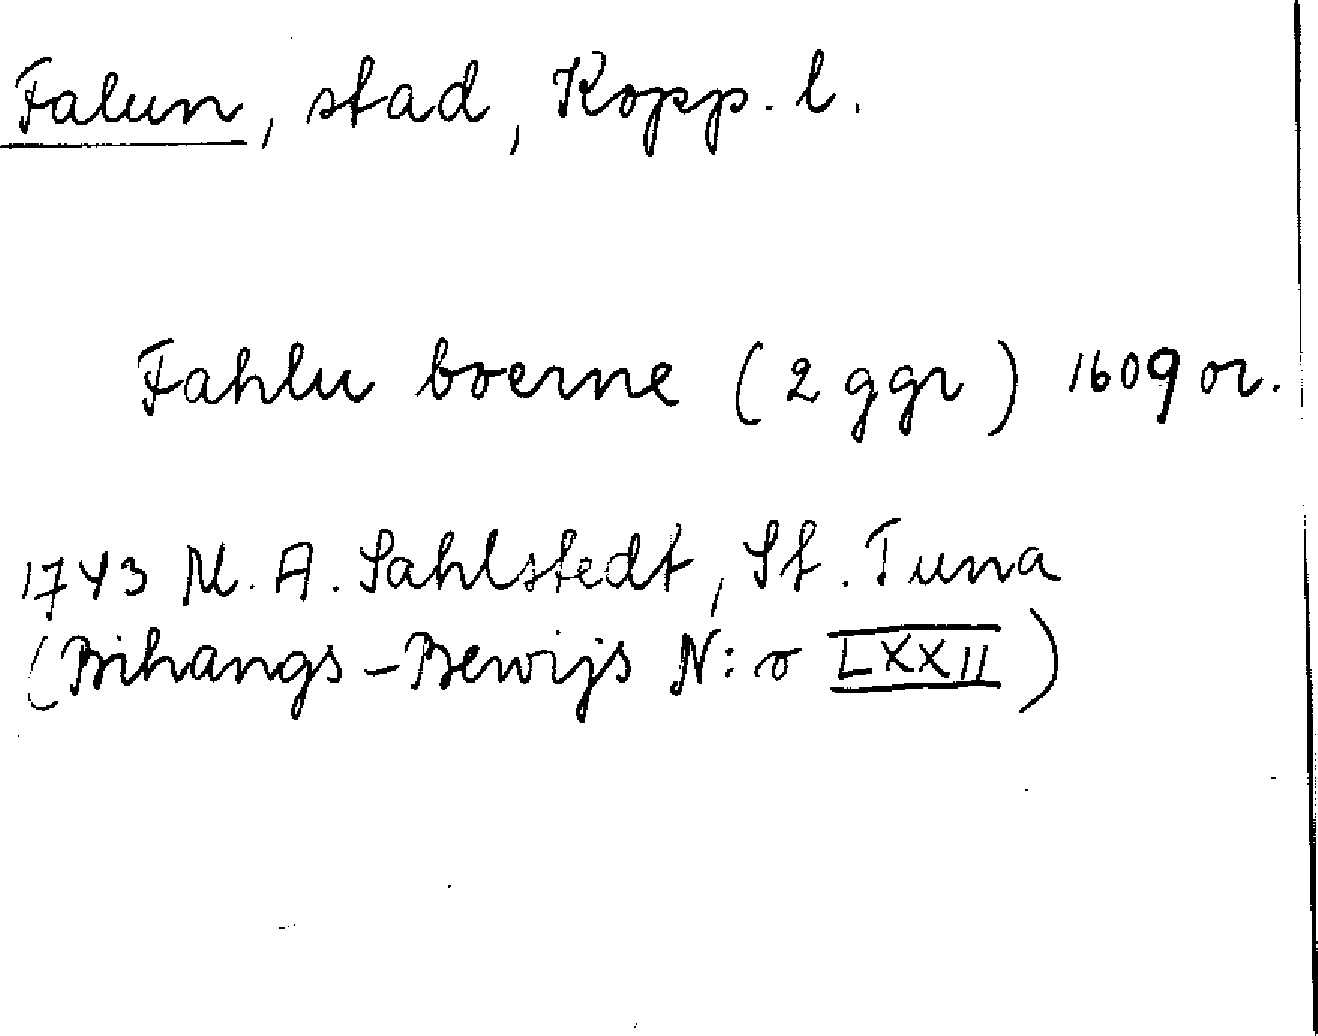 Falun, stad, Kopp. l.
Fahlu boerne (2 ggr) 1609 or.
1743 M. A. Sahlstedt, St. Tuna
(Bihangs-Bewijs N:o LXXII)